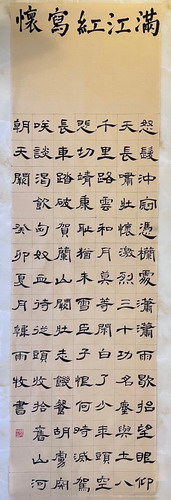 滿江紅寫懷
怒髮沖冠憑欄處瀟瀟雨歇抬望眼仰
天長嘯壯懷激烈三十功名塵與土八
千里路雲和月莫等閒白了少年頭空
悲切靖康恥猶未雪臣子恨何時滅駕
長車踏破賀蘭山闕壯志饑餐胡虜肉
咲談渴飲匈奴血待從頭收拾舊山河
朝天闕 癸卯夏月韓雨牧書